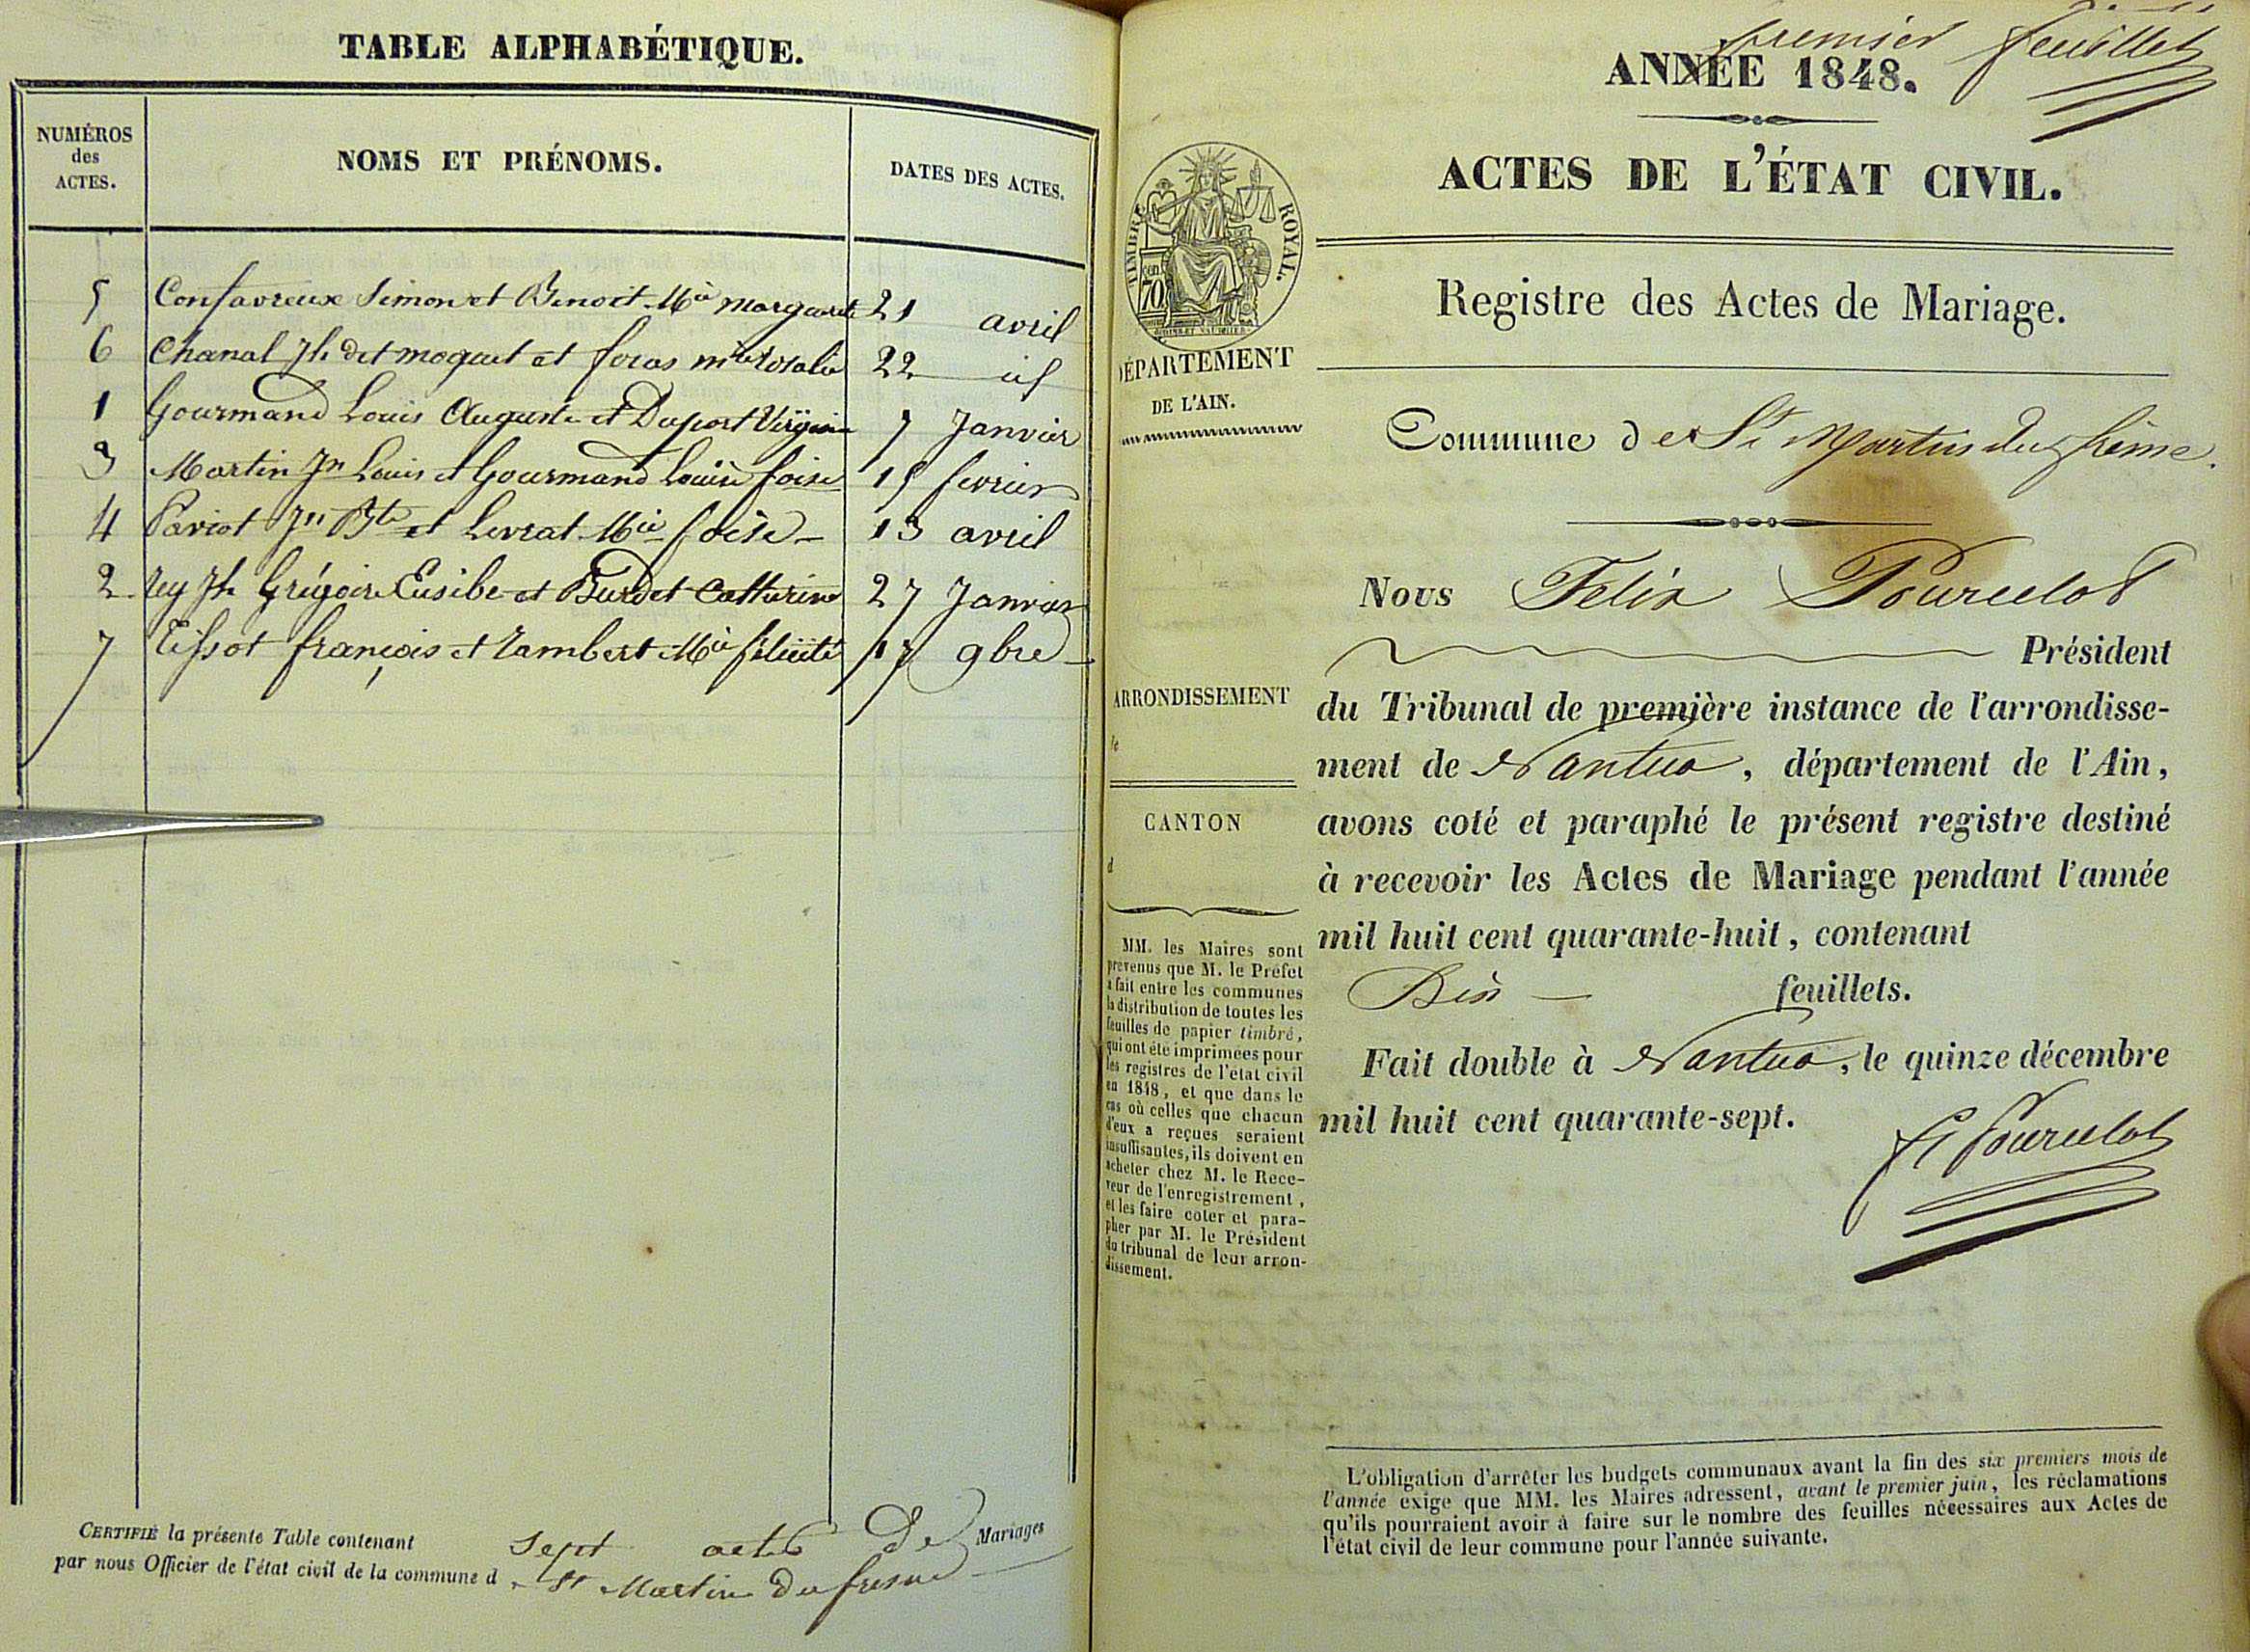 TABLE ALPHABÉTIQUE.
NUMÉROS
des
ACTES.
NOMS ET PRÉNOMS.
DATES DES ACTES.
5 Confavreux Simon et Benoit Mie Margueritte 21 avril
6 Chanal Jh dit moquet et foras mie rosalie 22 id
1 Gourmand Louis Auguste et Duport Virginie 7 Janvier
3 Martin Jn Louis et Gourmand Louise foise 15 fevrier
4 Paviot Jn Bte et Levrat Mie foise 13 avril
2 rey Jh Grégoire Eusibe et Burdet Catherine 27 Janvier
7 Tissot françois et Lambert Mie félicité 17 9bre
CERTIFIÉ la présente Table contenant sept actes De Mariages
par nous Officier de l'état civil de la commune d St Martin Du fresne
premier feuillet
ANNÉE 1848.
ACTES DE L'ÉTAT CIVIL.
TIMBRE ROYAL.
70
DÉPARTEMENT
DE L'AIN.
Registre des Actes de Mariage.
Commune de St Martin du frêne.
Nous Felix Pourcelot
Président
ARRONDISSEMENT
du Tribunal de première instance de l'arrondisse-
ment de Nantua, département de l'Ain,
CANTON
d
avons coté et paraphé le présent registre destiné
à recevoir les Actes de Mariage pendant l'année
mil huit cent quarante-huit, contenant
Dix feuillets.
Fait double à Nantua, le quinze décembre
mil huit cent quarante-sept.
F Pourcelot
MM. les Maires sont
prévenus que M. le Préfet
a fait entre les communes
la distribution de toutes les
feuilles de papier timbré,
qui ont été imprimées pour
les registres de l'état civil
en 1848, et que dans le
cas où celles que chacun
d'eux a reçues seraient
insuffisantes, ils doivent en
acheter chez M. le Rece-
veur de l'enregistrement,
et les faire coter et para-
pher par M. le Président
du tribunal de leur arron-
dissement.
L'obligation d'arrêter les budgets communaux avant la fin des six premiers mois de
l'année exige que MM. les Maires adressent, avant le premier juin, les réclamations
qu'ils pourraient avoir à faire sur le nombre des feuilles nécessaires aux Actes de
l'état civil de leur commune pour l'année suivante.